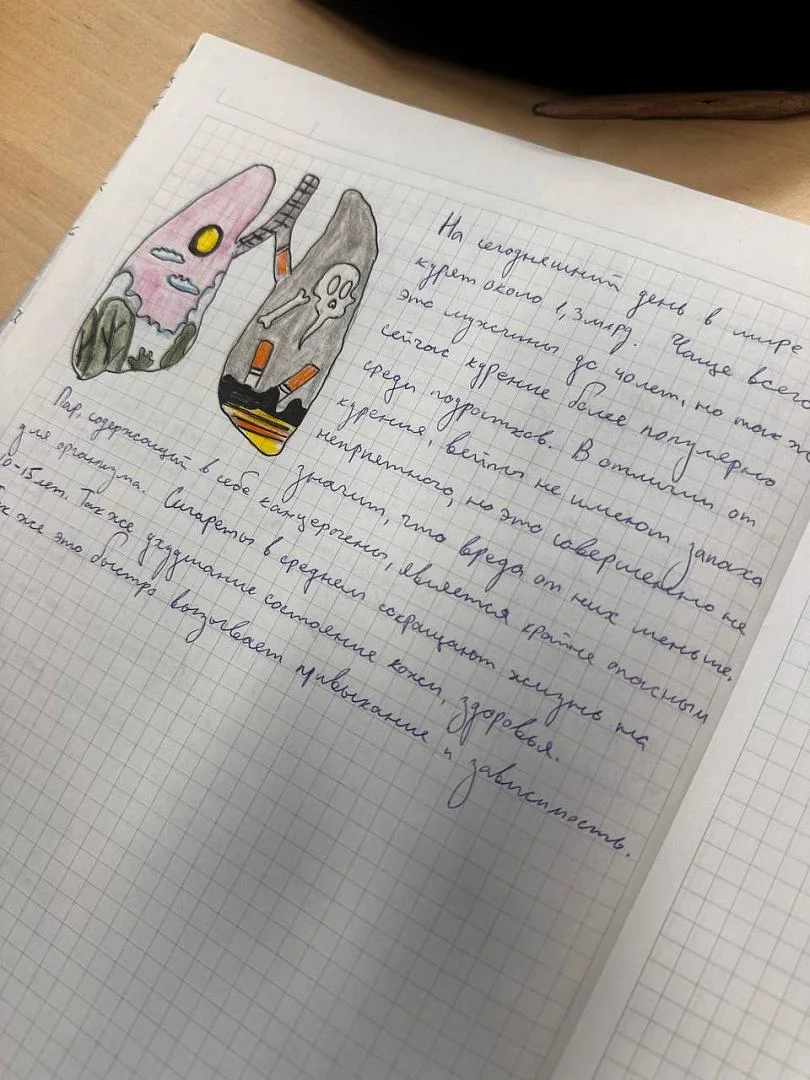 На сегоднешний день в мире
курят около 1,3 млрд. Чаще всего
это мужчины до 40лет, но так же
сейчас курение более популярно
среди подростков. В отличии от
курения, вейпы не имеют запаха
неприятного, но это совершенно не
значит, что вреда от них меньше.
Пар, содержащий в себе канцерогены, является крайне опасным
для организма. Сигареты в среднем сокращают жизнь на
10-15лет. Так же ухудшание состояние кожи, здоровья.
Так же это быстро вызывает привыкание и зависимость.